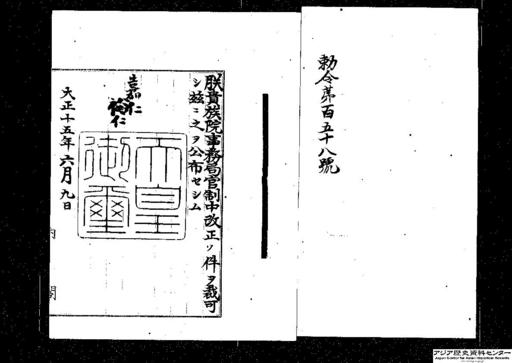 勅令第百五十八號
朕貴族院事務局官制中改正ノ件ヲ裁可
シ茲ニ之ヲ公布セシム
嘉仁
裕仁
天皇
御璽
大正十五年六月九日
内閣
アジア歴史資料センター
Japan Center for Asian Historical Records